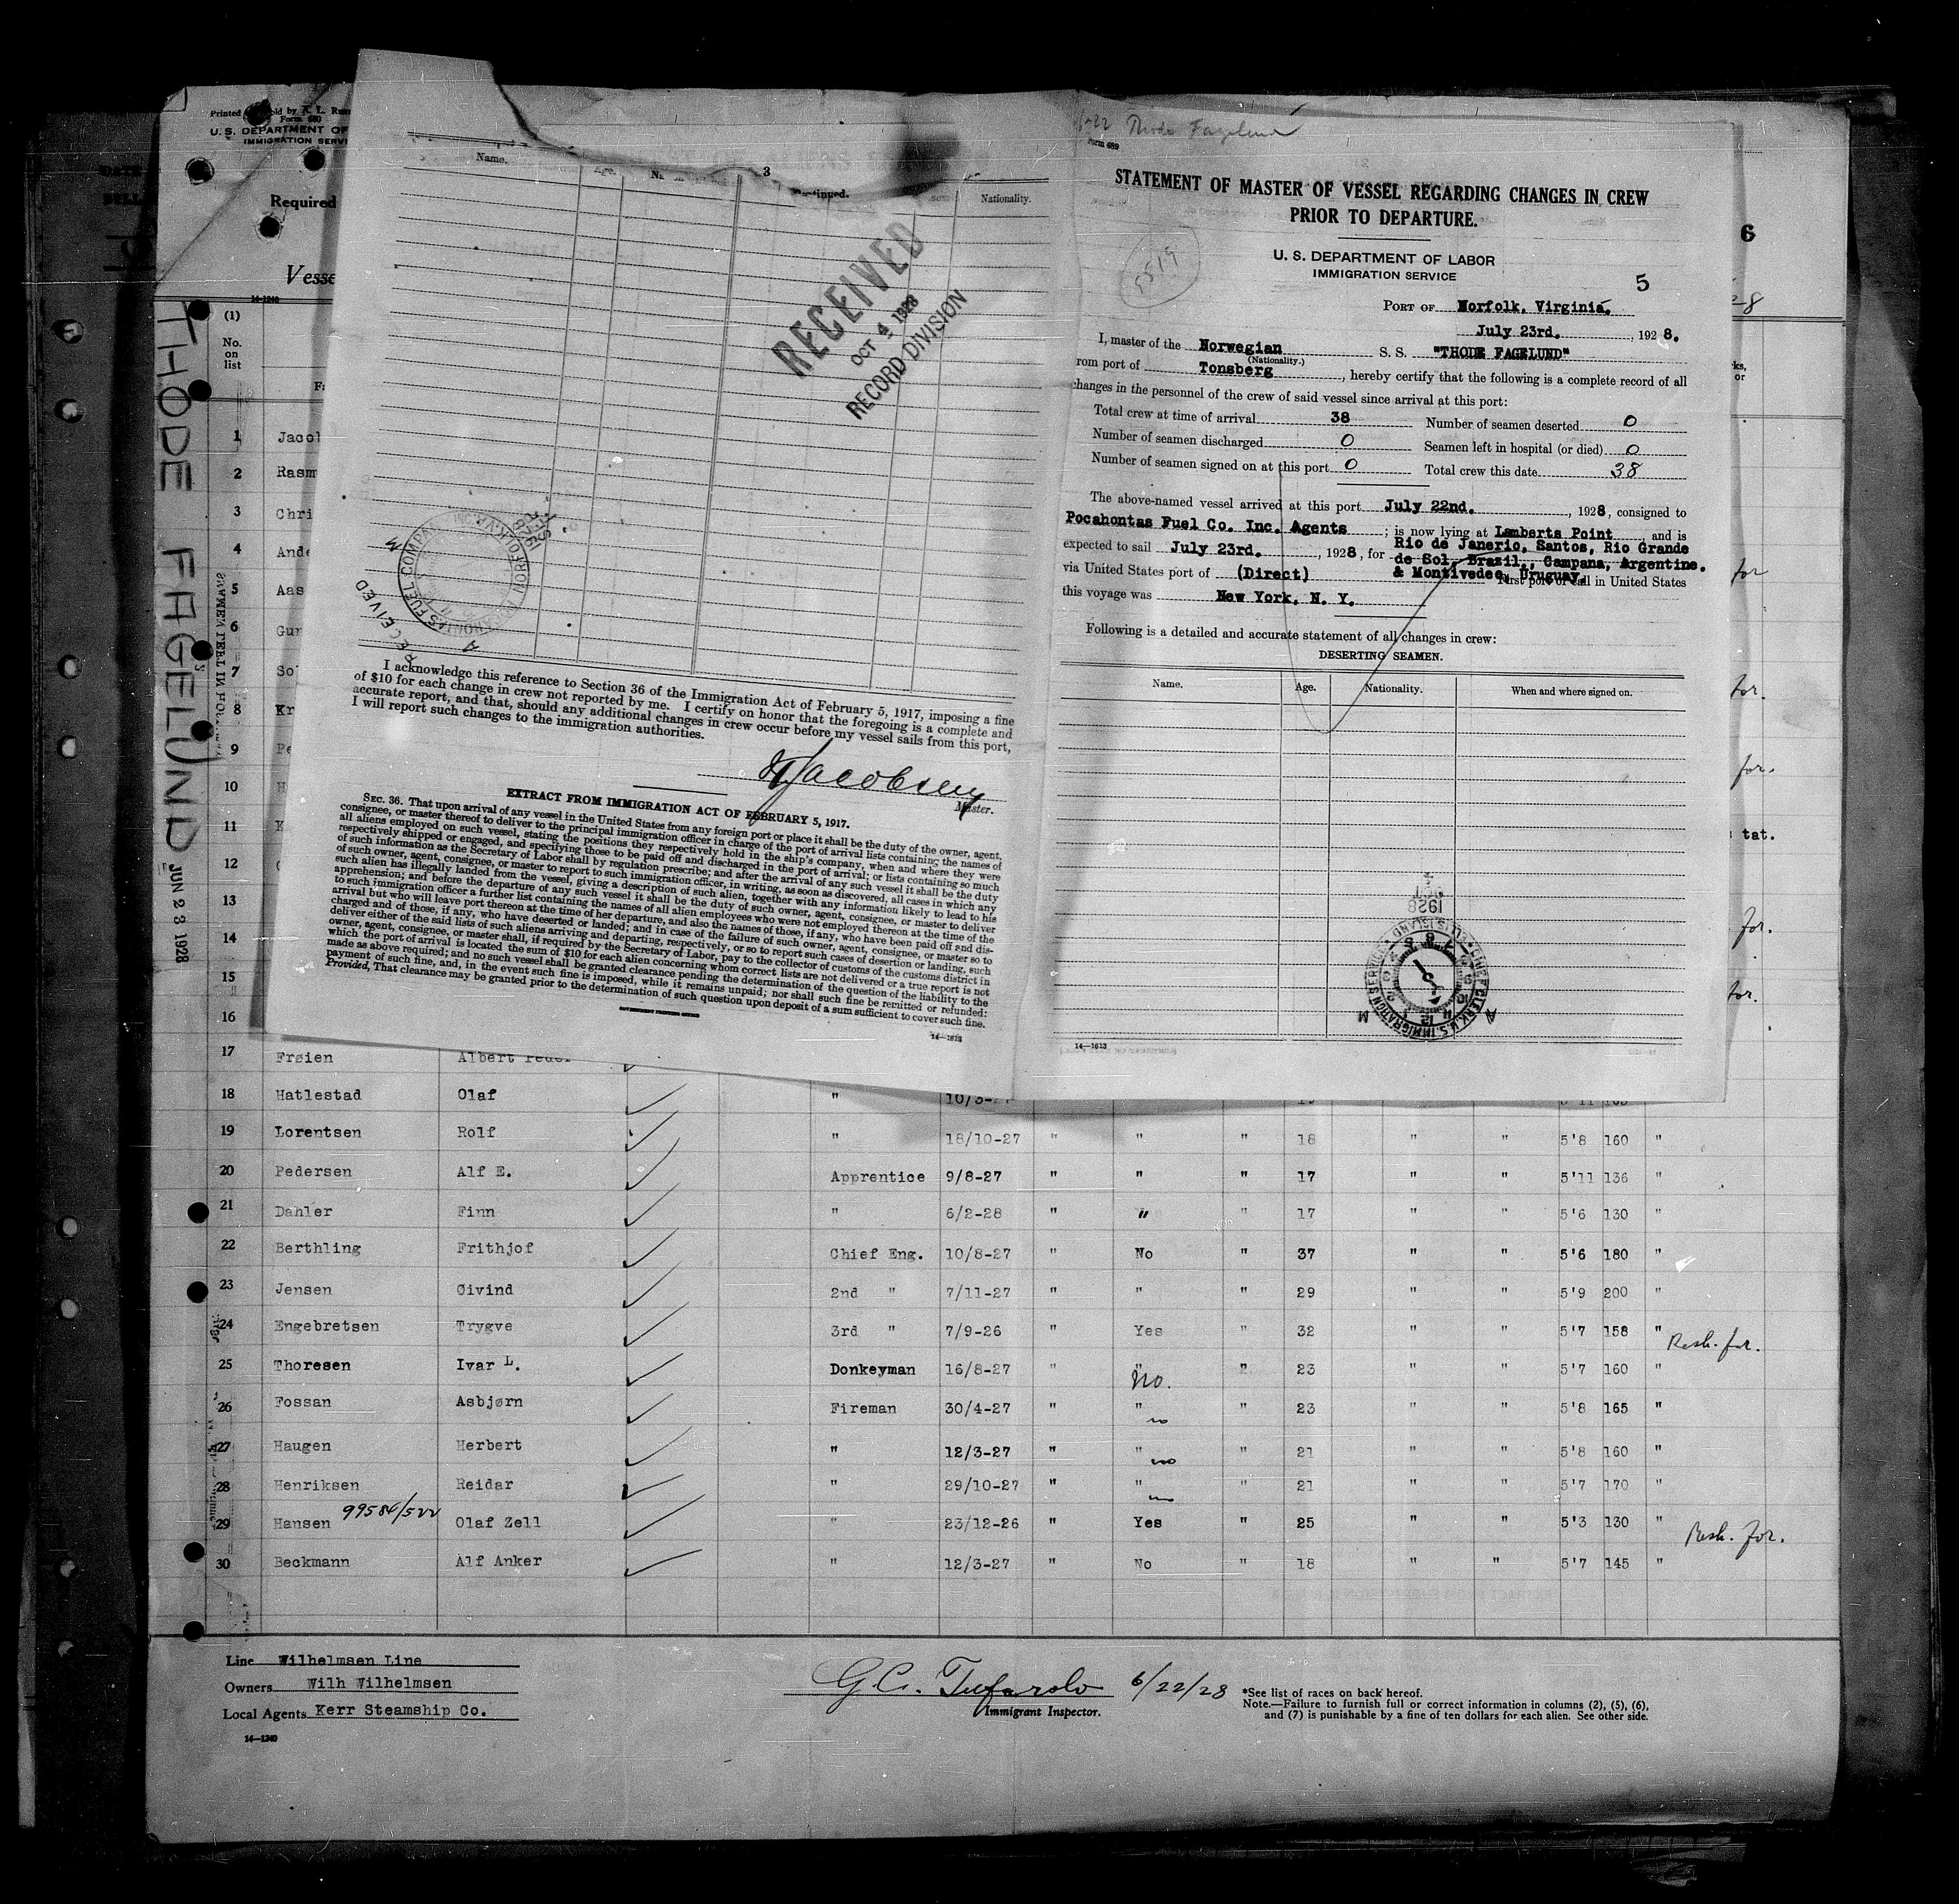 Form 680
U. S. DEPARTMENT OF
IMMIGRATION SERV
Required
Vesse
14-1240
(1)
No.
on
list
THODE FAGELUND
JUN 23 1928
6
1 Jacob
2 Rasm
3 Chri
4 Ande
5 Aas
6 Gur
7 So
8 Kr
9 Pe
10 H
11 K
12
13
14
15
16
17 Frøien Albert Peder
18 Hatlestad Olaf " 10/3-
19 Lorentsen Rolf " 18/10-27 " " " 18 " " 5'8 160 "
20 Pedersen Alf E. Apprentice 9/8-27 " " " 17 " " 5'11 136 "
21 Dahler Finn " 6/2-28 " " " 17 " " 5'6 130 "
22 Berthling Frithjof Chief Eng. 10/8-27 " No " 37 " " 5'6 180 "
23 Jensen Øivind 2nd " 7/11-27 " " " 29 " " 5'9 200 "
24 Engebretsen Trygve 3rd " 7/9-26 " Yes " 32 " " 5'7 158 " Resh. for.
25 Thoresen Ivar L. Donkeyman 16/8-27 " " No. " 23 " " 5'7 160 "
26 Fossan Asbjørn Fireman 30/4-27 " " no " 23 " " 5'8 165 "
27 Haugen Herbert " 12/3-27 " " no " 21 " " 5'8 160 "
28 Henriksen Reidar " 29/10-27 " " no " 21 " " 5'7 170 "
29 Hansen 99584/522 Olaf Zell " 23/12-26 " Yes " 25 " " 5'3 130 " Resh. for.
30 Beckmann Alf Anker " 12/3-27 " No " 18 " " 5'7 145 "
Line Wilhelmsen Line
Owners Wilh Wilhelmsen
Local Agents Kerr Steamship Co.
14-1240
G.C. Tufarolo 6/22/28
Immigrant Inspector.
*See list of races on back hereof.
Note.—Failure to furnish full or correct information in columns (2), (5), (6),
and (7) is punishable by a fine of ten dollars for each alien. See other side.
3
Name. Age. Nationality.
RECEIVED
OCT 4 1928
RECORD DIVISION
I acknowledge this reference to Section 36 of the Immigration Act of February 5, 1917, imposing a fine
of $10 for each change in crew not reported by me. I certify on honor that the foregoing is a complete and
accurate report, and that, should any additional changes in crew occur before my vessel sails from this port,
I will report such changes to the immigration authorities.
Jacobsen
Master.
EXTRACT FROM IMMIGRATION ACT OF FEBRUARY 5, 1917.
SEC. 36. That upon arrival of any vessel in the United States from any foreign port or place it shall be the duty of the owner, agent,
consignee, or master thereof to deliver to the principal immigration officer in charge of the port of arrival lists containing the names of
all aliens employed on such vessel, stating the positions they respectively hold in the ship's company, when and where they were
respectively shipped or engaged, and specifying those to be paid off and discharged in the port of arrival; or lists containing so much
of such information as the Secretary of Labor shall by regulation prescribe; and after the arrival of any such vessel it shall be the duty
of such owner, agent, consignee, or master to report to such immigration officer, in writing, as soon as discovered, all cases in which any
such alien has illegally landed from the vessel, giving a description of such alien, together with any information likely to lead to his
apprehension; and before the departure of any such vessel it shall be the duty of such owner, agent, consignee, or master to deliver
to such immigration officer a further list containing the names of all alien employees who were not employed thereon at the time of the
arrival but who will leave port thereon at the time of her departure, and also the names of those, if any, who have been paid off and dis-
charged and of those, if any, who have deserted or landed; and in case of the failure of such owner, agent, consignee, or master so to
deliver either of the said lists of such aliens arriving and departing, respectively, or so to report such cases of desertion or landing, such
owner, agent, consignee, or master shall, if required by the Secretary of Labor, pay to the collector of customs of the customs district in
which the port of arrival is located the sum of $10 for each alien concerning whom correct lists are not delivered or a true report is not
made as above required; and no such vessel shall be granted clearance pending the determination of the question of the liability to the
payment of such fine, and, in the event such fine is imposed, while it remains unpaid; nor shall such fine be remitted or refunded:
Provided, That clearance may be granted prior to the determination of such question upon deposit of a sum sufficient to cover such fine.
GOVERNMENT PRINTING OFFICE
14—1613
Thode Fagelund
Form 689
STATEMENT OF MASTER OF VESSEL REGARDING CHANGES IN CREW
PRIOR TO DEPARTURE.
5519
U. S. DEPARTMENT OF LABOR
IMMIGRATION SERVICE
5
PORT OF Norfolk, Virginia.
July 23rd. , 1928.
I, master of the Norwegian S. S. "THODE FAGELUND"
(Nationality.)
rom port of Tonsberg , hereby certify that the following is a complete record of all
changes in the personnel of the crew of said vessel since arrival at this port:
Total crew at time of arrival 38 Number of seamen deserted 0
Number of seamen discharged 0 Seamen left in hospital (or died) 0
Number of seamen signed on at this port 0 Total crew this date 38
The above-named vessel arrived at this port July 22nd. , 1928, consigned to
Pocahontas Fuel Co. Inc. Agents ; is now lying at Lamberts Point , and is
expected to sail July 23rd. , 1928, for Rio de Janerio, Santos, Rio Grande
de Sol, Brazil., Campana, Argentine.
& Montivedeo, Uruguay.
via United States port of (Direct) First port of call in United States
this voyage was New York, N. Y.
Following is a detailed and accurate statement of all changes in crew:
DESERTING SEAMEN.
Name. Age. Nationality. When and where signed on.
CHIEF CLERK U.S. IMMIGRATION SERVICE ELLIS ISLAND
1928
14—1613